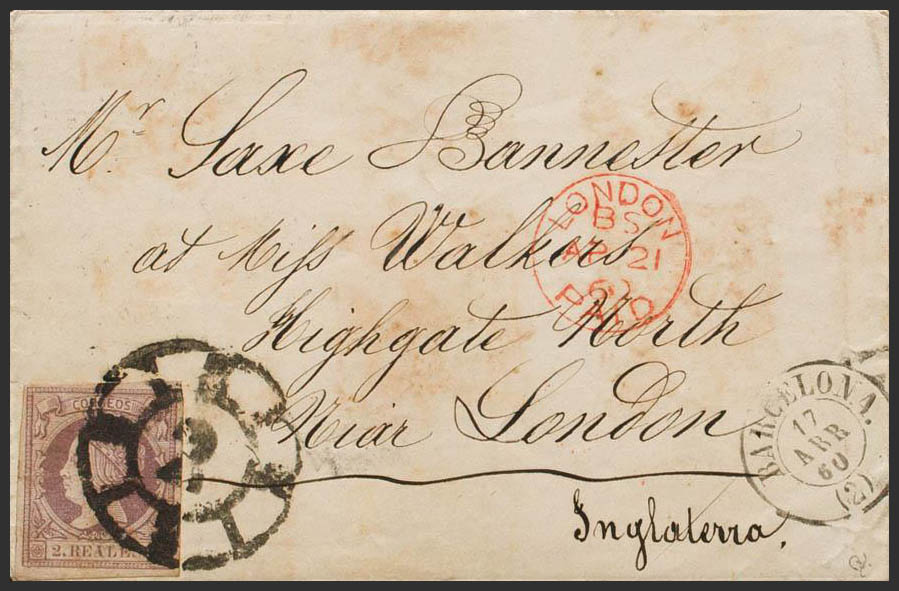 Mr Saxe Bannester
at Miss Walkers
Highgate North
Near London
Inglaterra.
LONDON
BS
AP 21
60
PAID
CORREOS
2
2. REALES
BARCELONA.
17
ABR
60
(2)